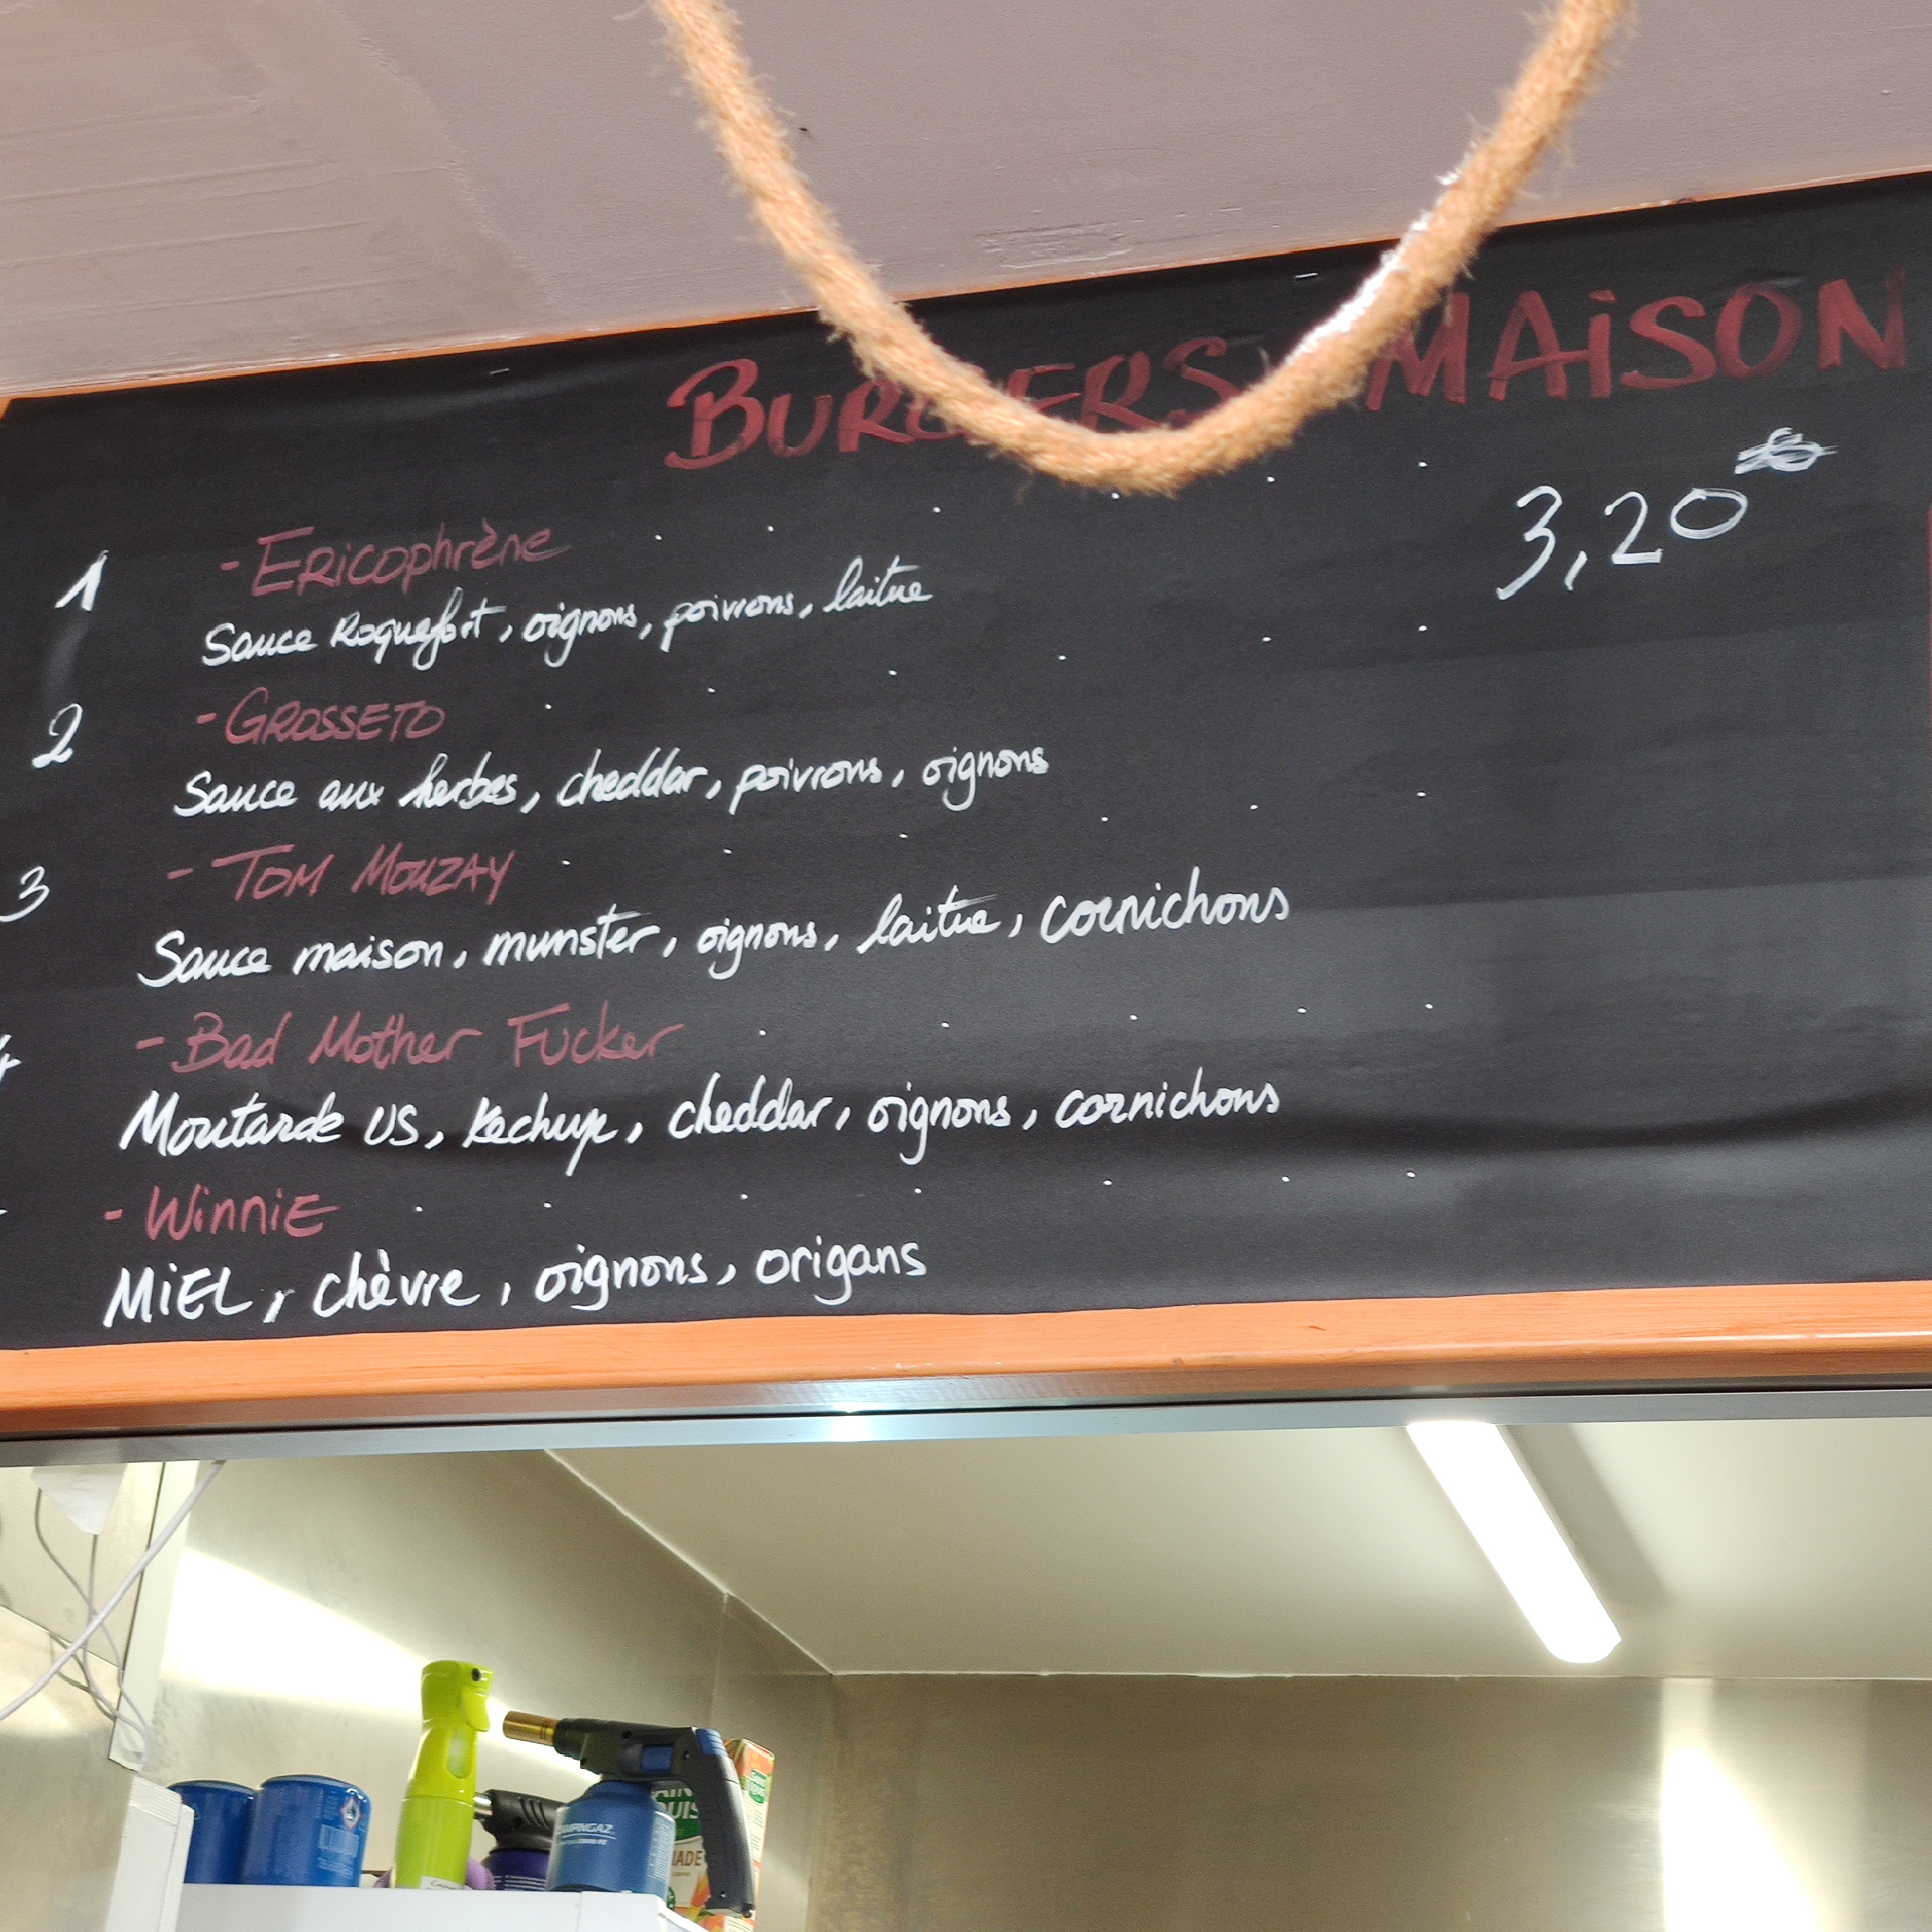 BURGERS MAiSON
3,20
1 - Ericophrène
Sauce Roquefort, oignons, poivrons, laitue
2 - GROSSETO
Sauce aux herbes, cheddar, poivrons, oignons
3 - TOM MOUZAY
Sauce maison, munster, oignons, laitue, cornichons
4 - Bad Mother Fucker
Moutarde US, kechup, cheddar, oignons, cornichons
- WinniE
MiEL, chèvre, oignons, origans
CAMPINGAZ